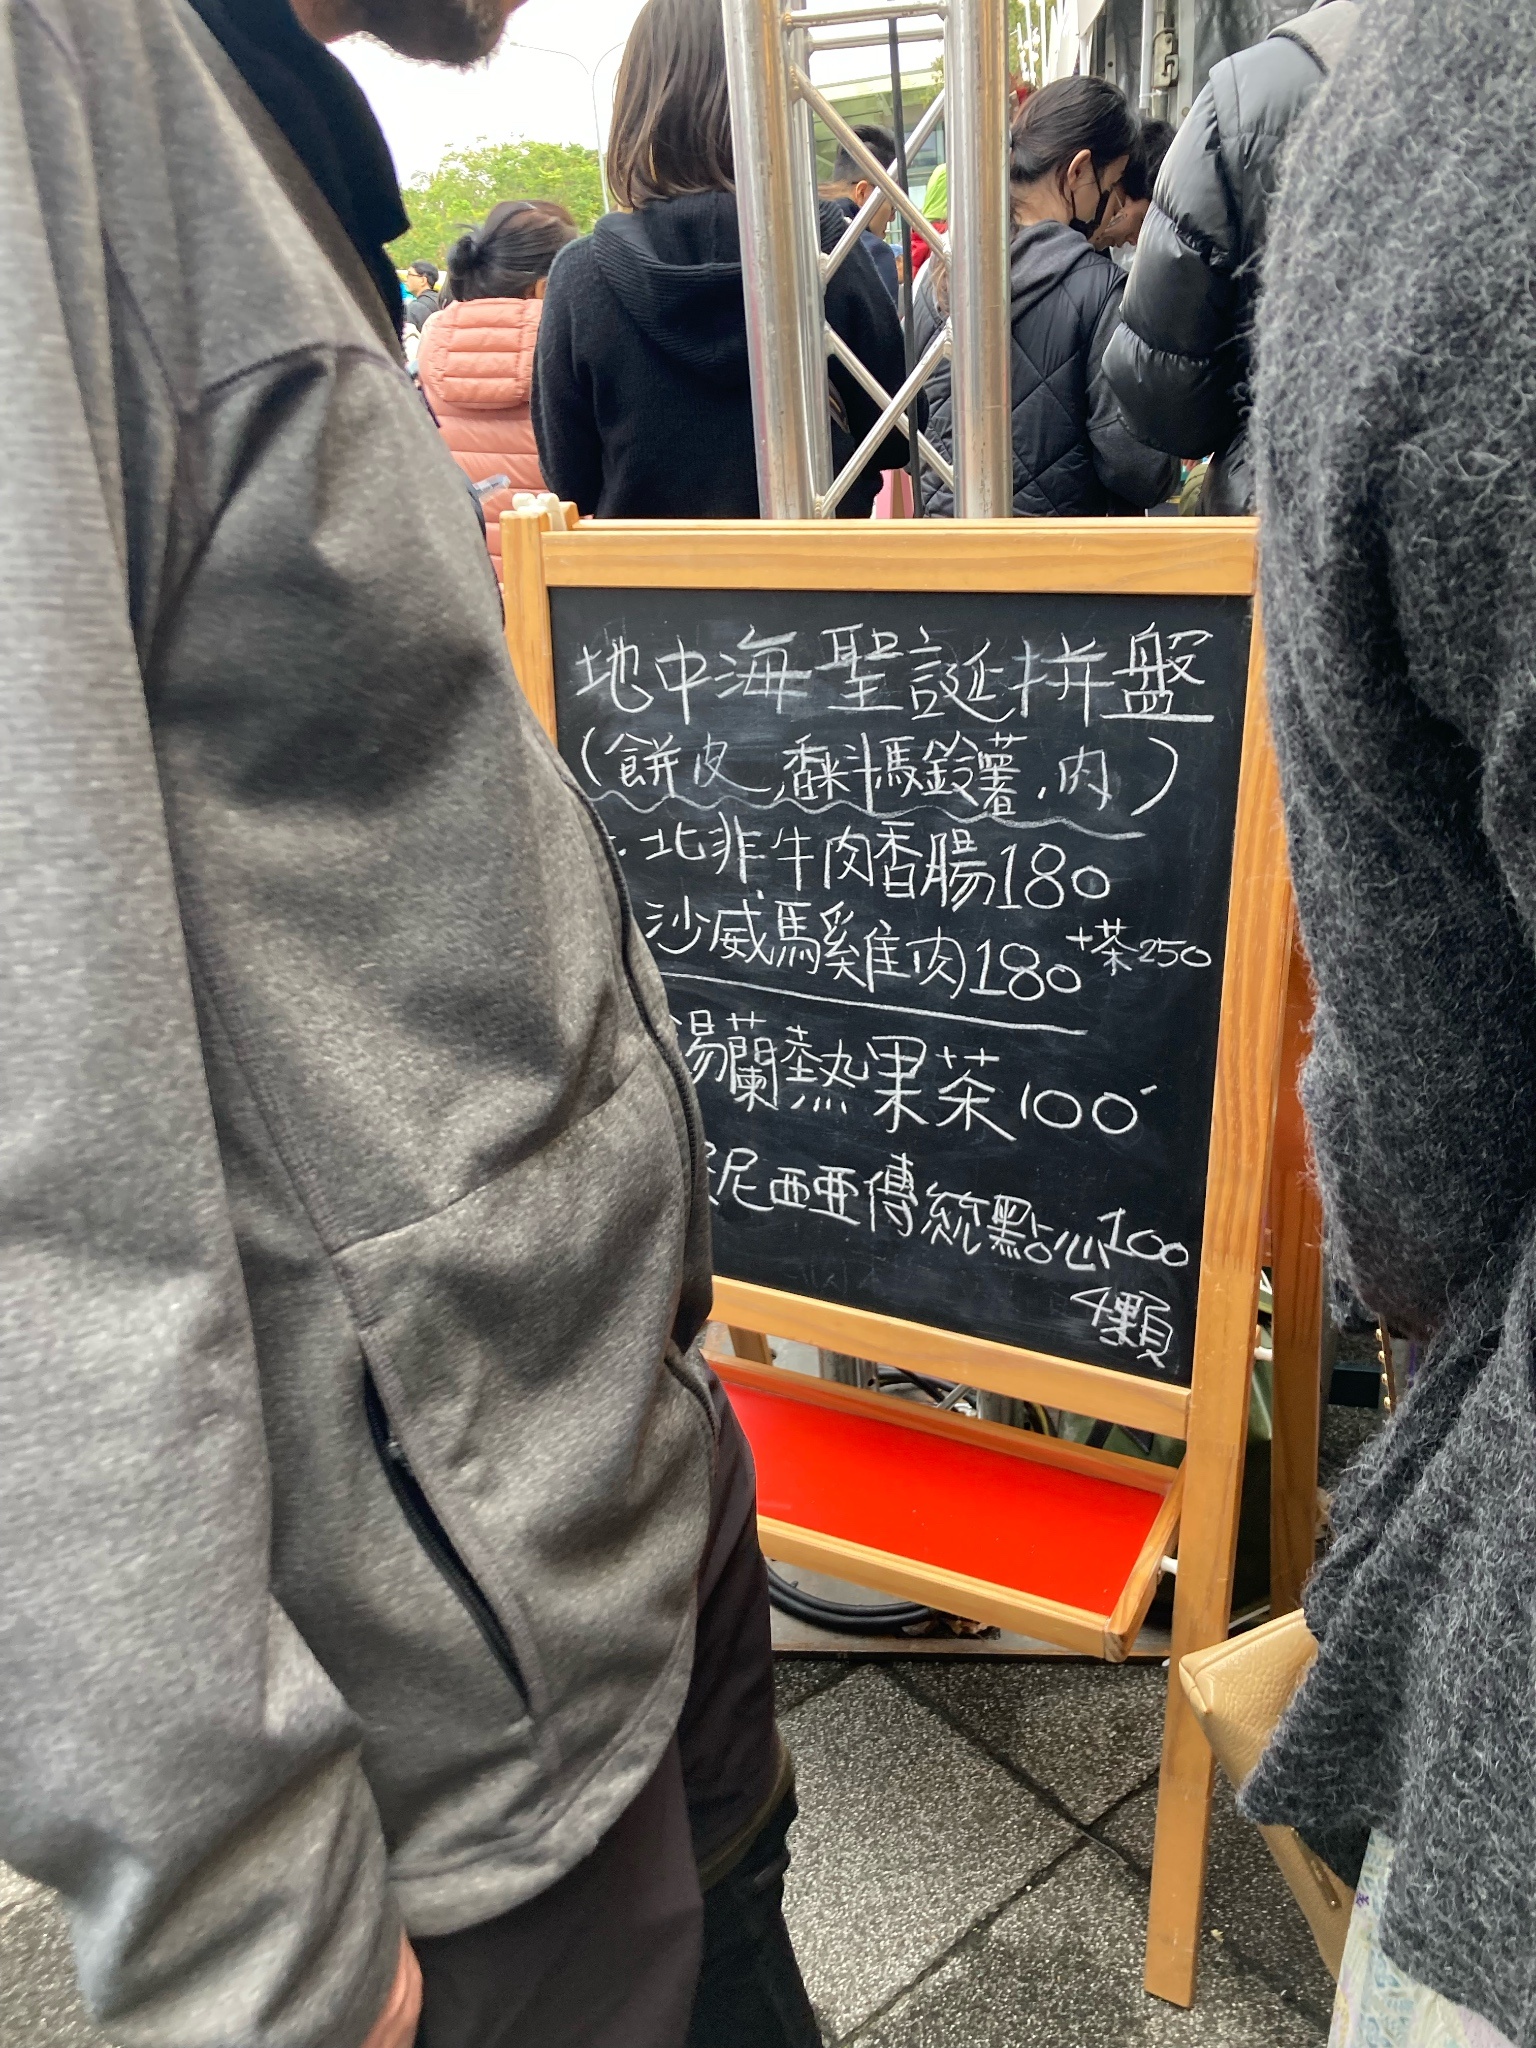 地中海聖誕拼盤
(餅皮、香料馬鈴薯、肉)
北非牛肉香腸180
沙威馬雞肉180 +茶250
蘭熱果茶100
尼西亞傳統點心100
4顆